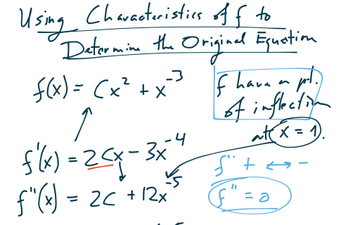 Using Characteristics of f to
Determine the Original Equation
f(x) = Cx² + x⁻³
f have a pt.
of inflection
at x = 1.
f'(x) = 2Cx - 3x⁻⁴
f''(x) = 2C + 12x⁻⁵
f'' + ↔ -
f'' = 0